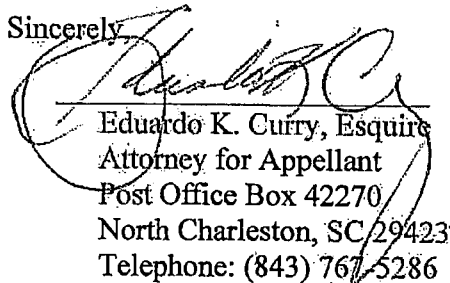 Sincerely,
Eduardo K. Curry, Esquire
Attorney for Appellant
Post Office Box 42270
North Charleston, SC 29423
Telephone: (843) 767-5286